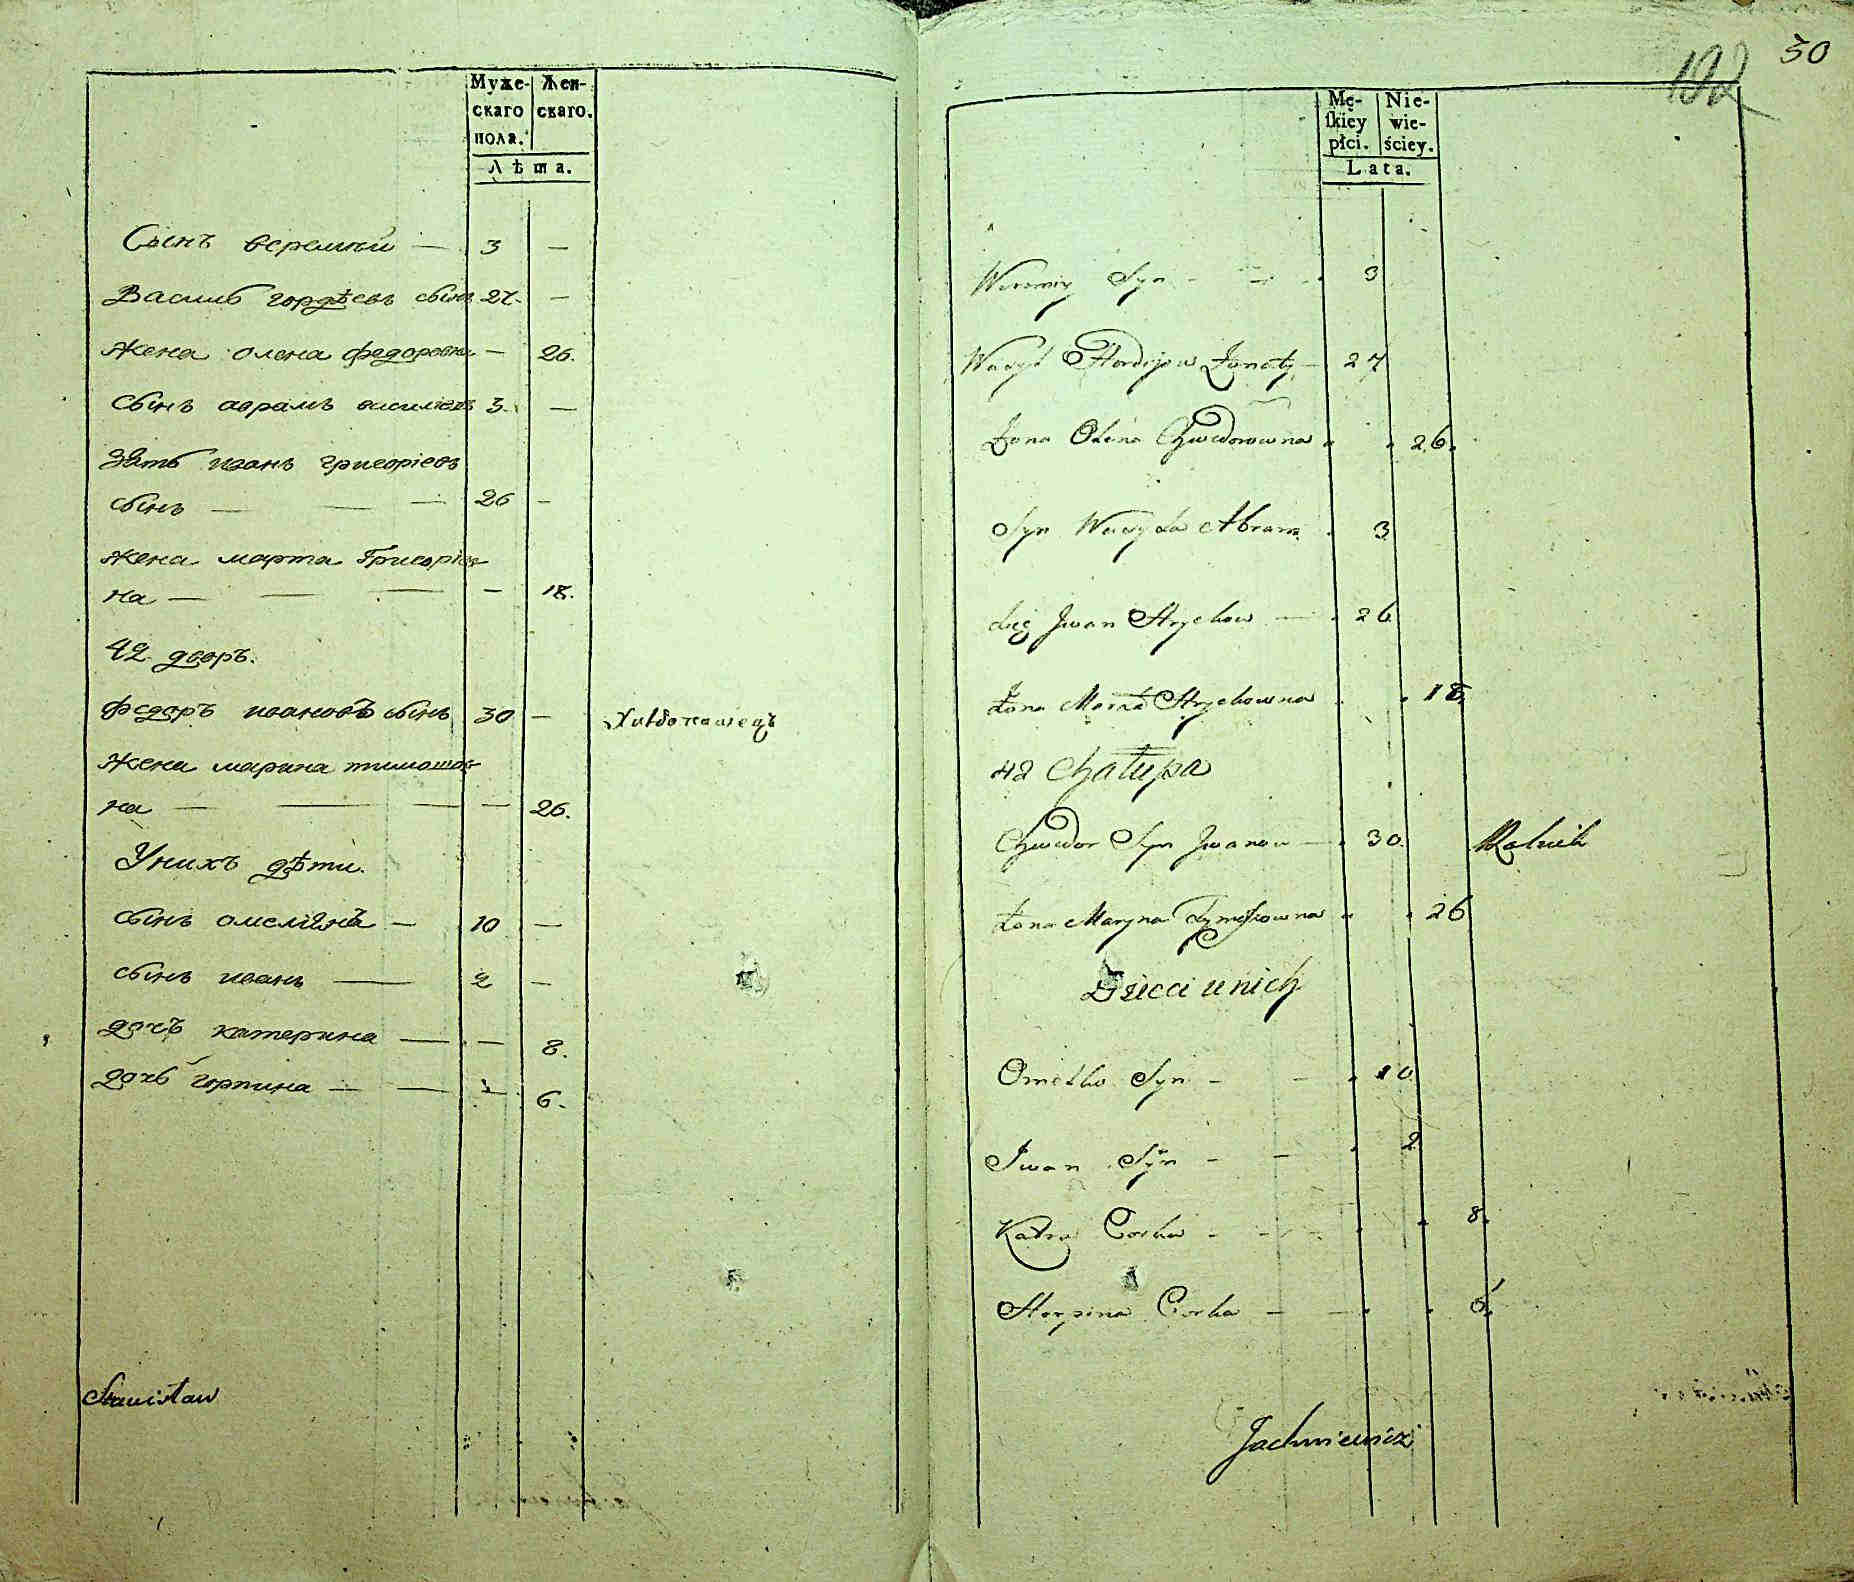 Муже-
скаго
пола.
Жен-
скаго.
Лѣта.
Сынъ веремѣй — 3 —
Василь гордѣевъ сынъ 27. —
жена олена федоровна — 26.
сынъ аврамъ василіевъ 3. —
Зять иванъ григоріевъ
сынъ — — — 26 —
жена марта Григоріев
на — — — — 18.
42 дворъ.
федоръ ивановъ сынъ 30 — Хлѣбопашецъ
жена марина тимошов
на — — — — 26.
У нихъ дѣти.
сынъ омелянъ — 10 —
сынъ иванъ — 2 —
дочь катерина — — 8.
дочь горпина — — — 6.
Stanisław
50
102
Mę-
skiey
płci.
Nie-
wie-
ściey.
Lata.
Weremiy Syn - - 3
Wasyl Hordijow Żonaty — 27
Żona Olena Chwedorowna 26.
Syn Wasyla Abram 3
Zięć Jwan Hrychow — 26
Żona Marta Hrychowna 18.
42 Chałupa
Chwedor Syn Jwanow — 30. Rolnik
Żona Maryna Tymoszkowna 26
Dzieci u nich
Omelko Syn - - 10
Jwan Syn - - 2
Katra Corka - - 8.
Horpina Corka — — 6.
Jachniewicz